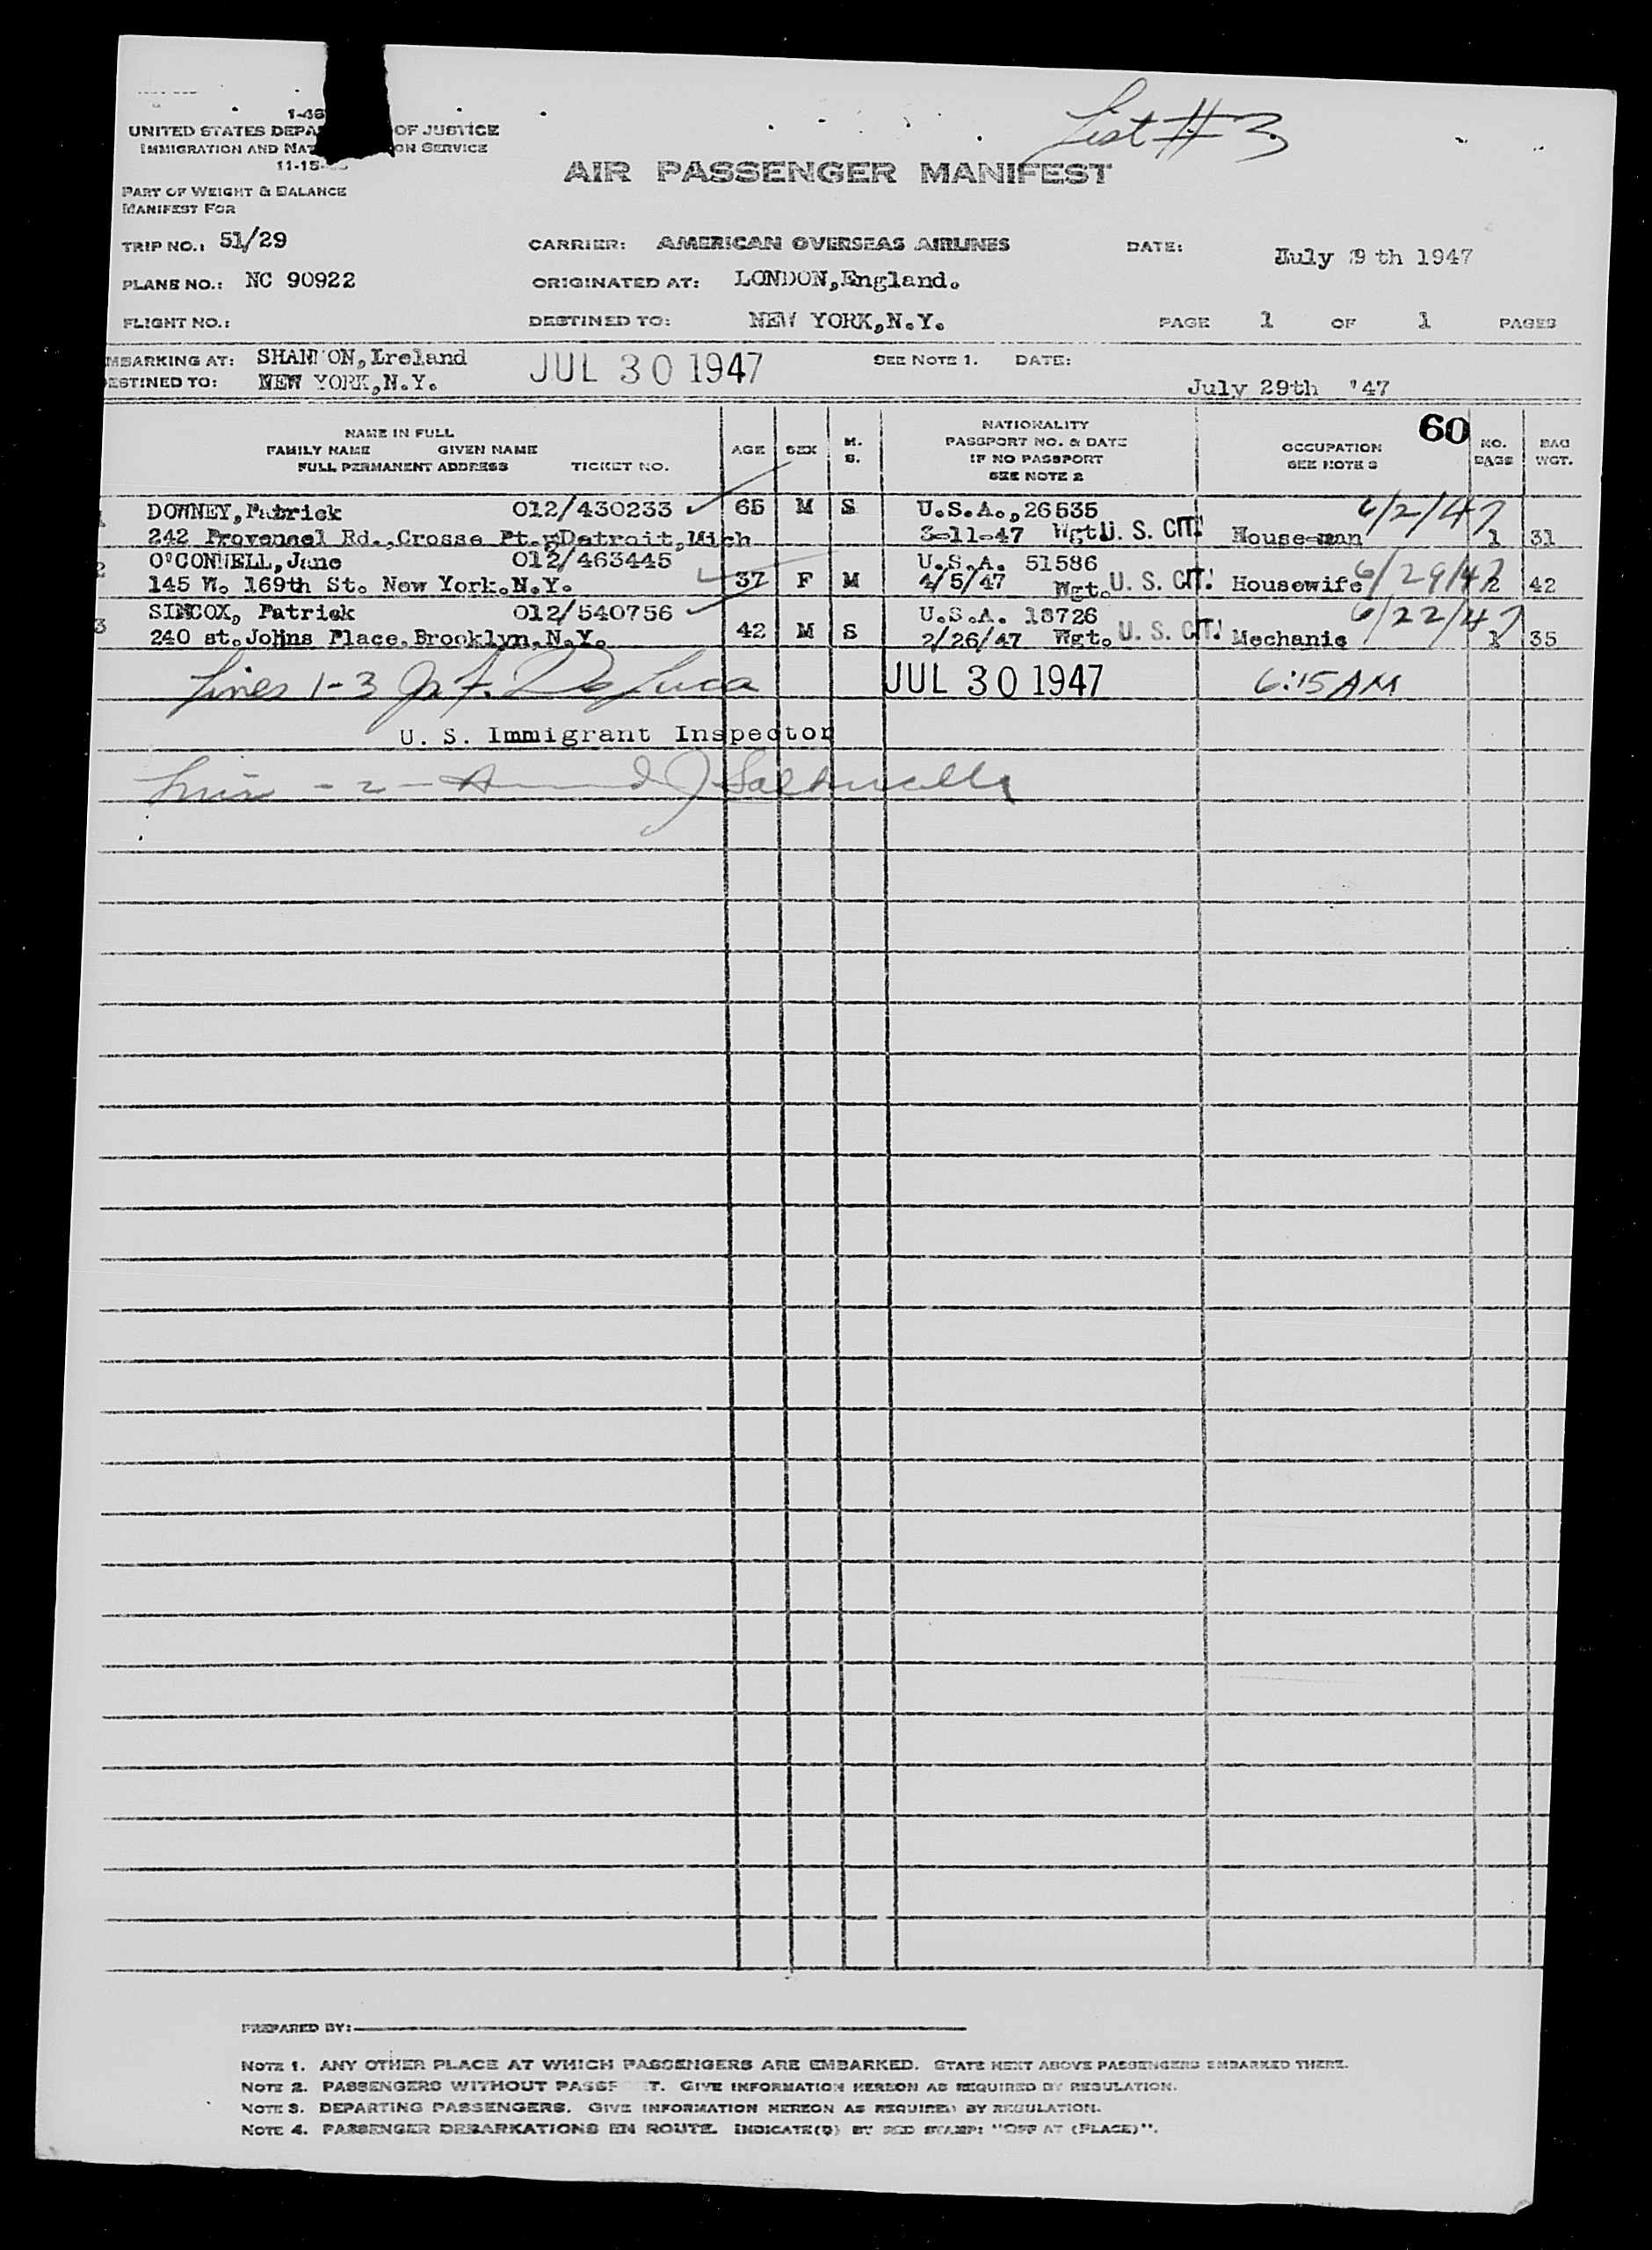 List # 3
1-46
UNITED STATES DEPA OF JUSTICE
IMMIGRATION AND NAT ON SERVICE
11-15-
AIR PASSENGER MANIFEST
PART OF WEIGHT & BALANCE
MANIFEST FOR
TRIP NO.: 51/29 CARRIER: AMERICAN OVERSEAS AIRLINES DATE: July 29th 1947
PLANE NO.: NC 90922 ORIGINATED AT: LONDON,England.
FLIGHT NO.: DESTINED TO: NEW YORK,N.Y. PAGE 1 OF 1 PAGES
MBARKING AT: SHANNON,Ireland JUL 30 1947 SEE NOTE 1. DATE:
ESTINED TO: NEW YORK,N.Y. July 29th '47
60
NAME IN FULL
FAMILY NAME GIVEN NAME
FULL PERMANENT ADDRESS TICKET NO. AGE SEX M. S.
NATIONALITY
PASSPORT NO. & DATE
IF NO PASSPORT
SEE NOTE 2
OCCUPATION
SEE NOTE 3
NO. BAGS BAG WGT.
1 DOWNEY,Patrick 012/430233 65 M S U.S.A.,26535 6/2/47
242 Provensel Rd.,Crosse Pt.,Detroit,Mich 3-11-47 Wgt U. S. CIT. House-man 1 31
2 O'CONNELL,Jane 012/463445 U.S.A. 51586 6/29/47
145 W. 169th St. New York.N.Y. 37 F M 4/5/47 Wgt. U. S. CIT. Housewife 2 42
3 SIMCOX, Patrick 012/540756 U.S.A. 18726 6/22/47
240 st.Johns Place.Brooklyn.N.Y. 42 M S 2/26/47 Wgt. U. S. CIT. Mechanic 1 35
Lines 1-3 Jr. F. DeLuca JUL 30 1947 6:15 AM
U. S. Immigrant Inspector
- 2 -
PREPARED BY:
NOTE 1. ANY OTHER PLACE AT WHICH PASSENGERS ARE EMBARKED. STATE NEXT ABOVE PASSENGERS EMBARKED THERE.
NOTE 2. PASSENGERS WITHOUT PASSP T. GIVE INFORMATION HEREON AS REQUIRED BY REGULATION.
NOTE 3. DEPARTING PASSENGERS. GIVE INFORMATION HEREON AS REQUIRED BY REGULATION.
NOTE 4. PASSENGER DEBARKATIONS EN ROUTE. INDICATE(D) BY RED STAMP: "OFF AT (PLACE)".